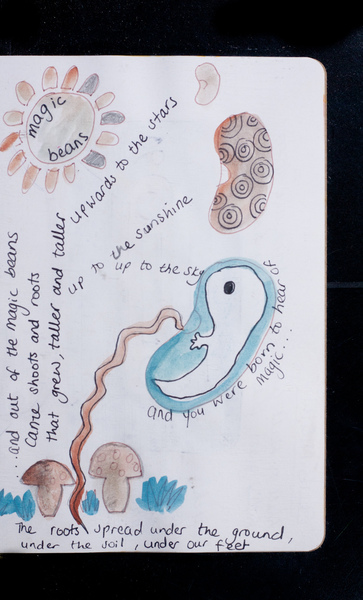 magic
beans
...and out of the magic beans
came shoots and roots
that grew, taller and taller
upwards to the stars
up to the sunshine
up to the sky
and you were born to hear of
magic...
The roots spread under the ground,
under the soil, under our feet